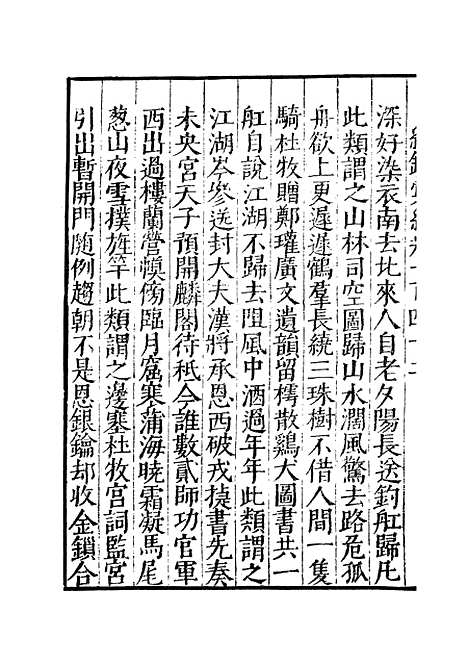 深好染衣南去北來人自老夕陽長送釣舡歸凡
此類謂之山林司空圖歸山水濶風驚去路危孤
舟欲上更遲遲鶴羣長繞三珠樹不借人間一隻
騎杜牧贈鄭瓘廣文遺韻留樗散鷄大圖書共一
舡自說江湖不歸去阻風中酒過年年此類謂之
江湖岑參送封大夫漢將承恩西破戎捷書先奏
未央宮天子預開麟閣待秪今誰數貳師功官軍
西出過樓蘭營幙傍臨月窟寒蒲海曉霜凝馬尾
葱山夜雪撲旌竿此類謂之邊塞杜牧宮詞監宮
引出暫開門随例趨朝不是恩銀鑰却收金鎖合